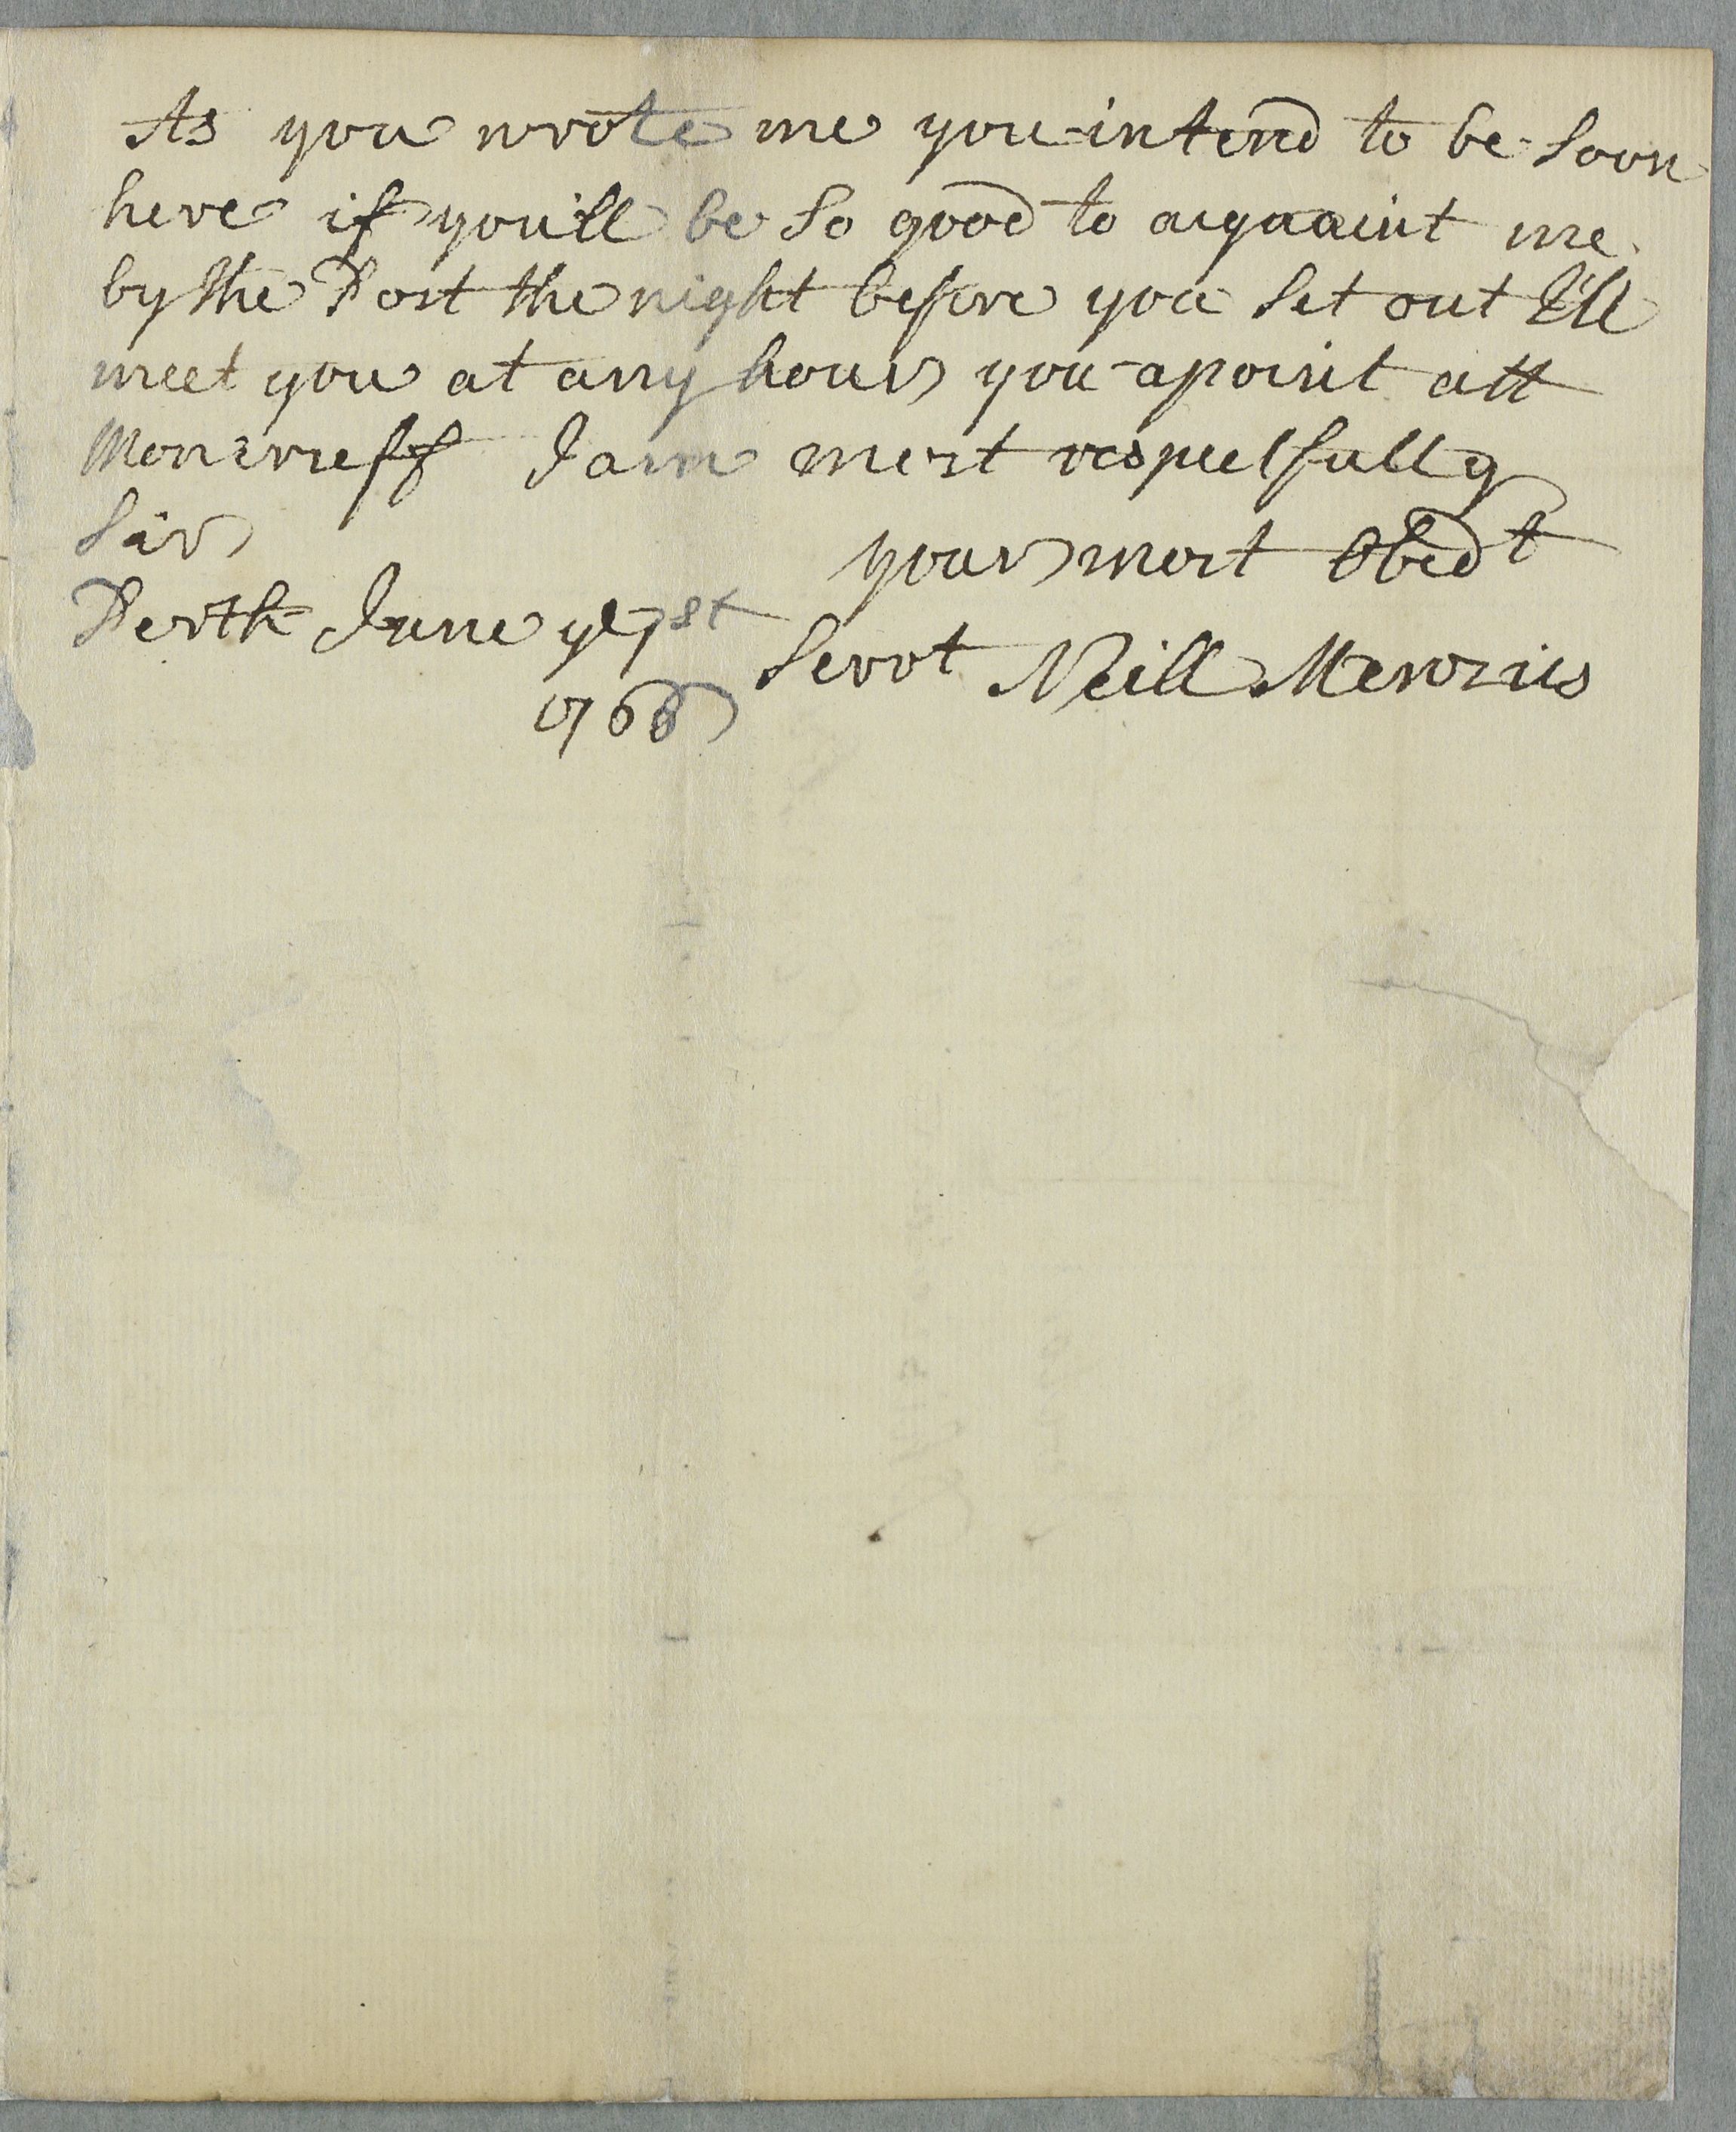 As you wrote me you intend to be soon
here if you'll be so good to acquaint me
by the Post the night before you set out I'll
meet you at any hour you apoint att
Moncrieff I am most respectfully
Sir
your most Obedt
Perth June ye 1st
Servt Neill Menzies
1766